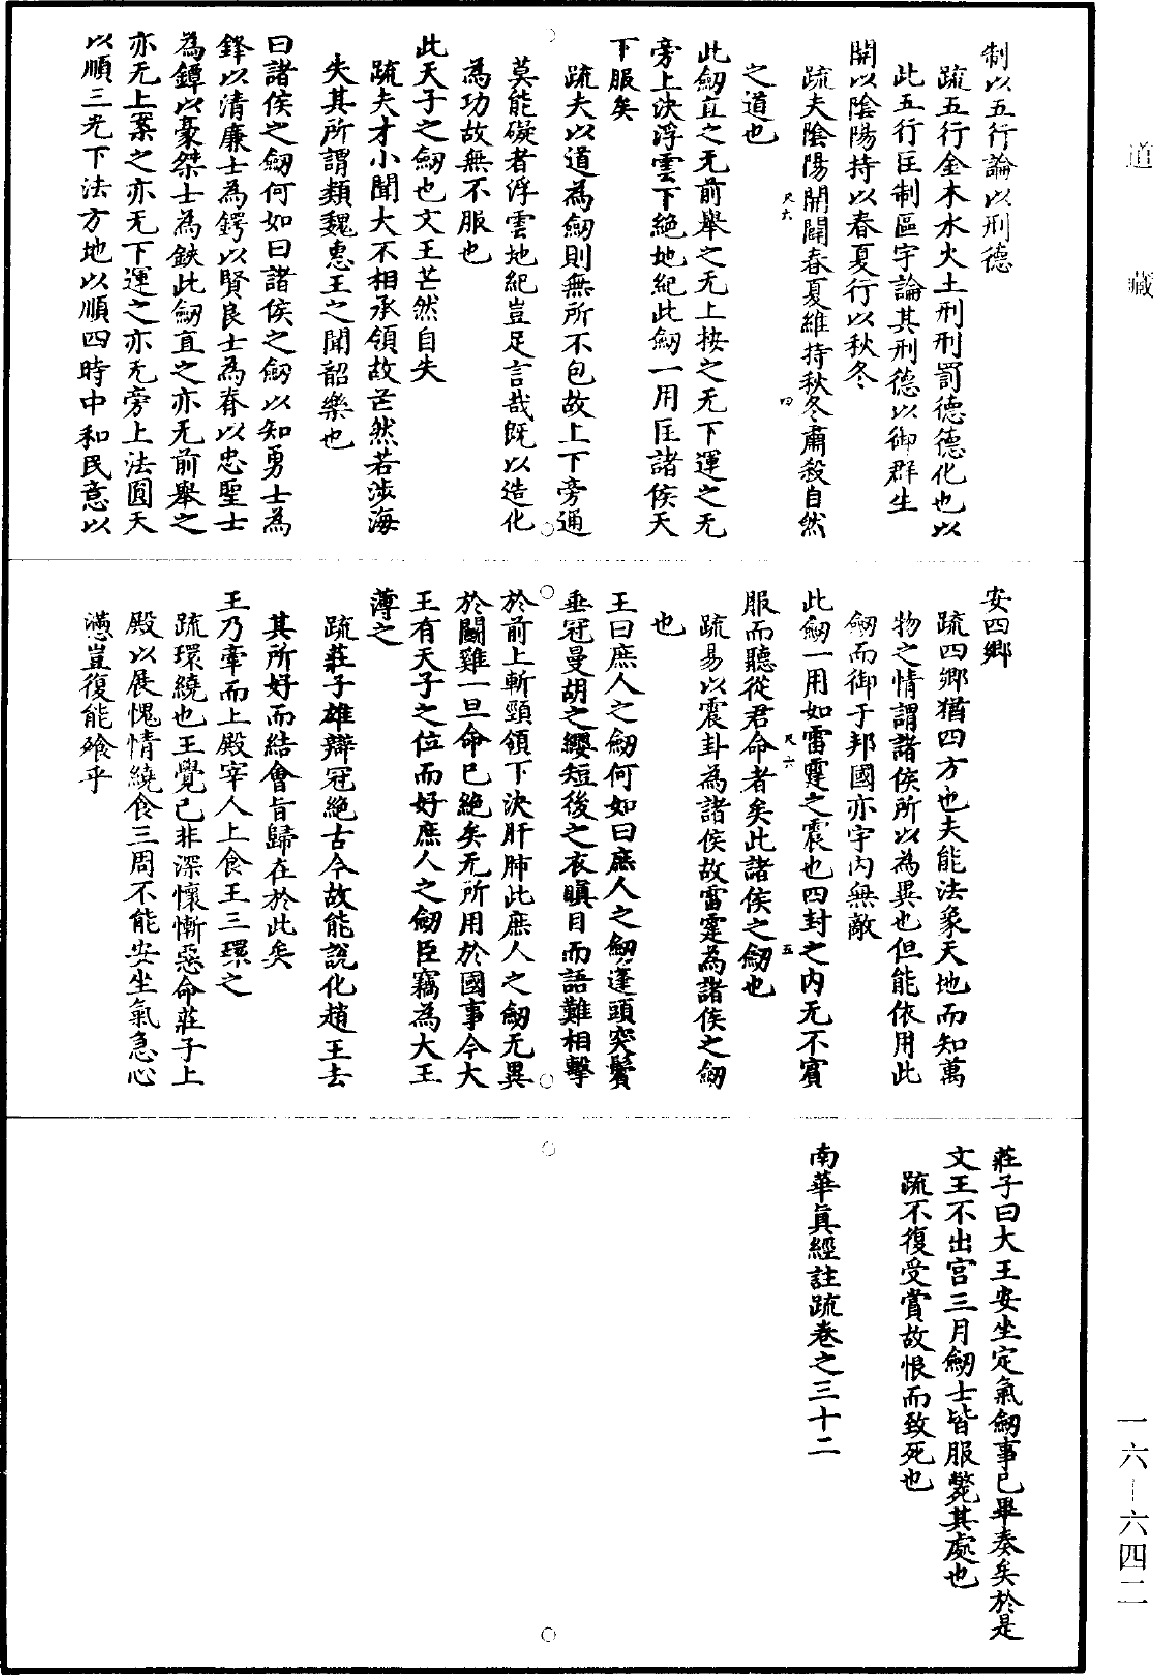 道藏
制以五行論以刑德
疏五行金木水火土刑刑罰德德化也以
此五行匡制區宇論其刑德以御群生
開以陰陽持以春夏行以秋冬
疏夫陰陽開闢春夏維持秋冬肅殺自然
之道也
尺六
四
此劒直之无前舉之无上按之无下運之无
旁上決浮雲下絶地紀此劒一用匡諸侯天
下服矣
疏夫以道為劒則無所不包故上下旁通
莫能礙者浮雲地紀豈足言哉既以造化
為功故無不服也
此天子之劒也文王芒然自失
疏夫才小聞大不相承領故芒然若涉海
失其所謂類魏惠王之聞韶樂也
曰諸侯之劒何如曰諸侯之劒以知勇士為
鋒以清廉士為鍔以賢良士為脊以忠聖士
為鐔以豪桀士為鋏此劒直之亦无前舉之
亦无上案之亦无下運之亦无旁上法圓天
以順三光下法方地以順四時中和民意以
安四鄉
疏四鄉猶四方也夫能法象天地而知萬
物之情謂諸侯所以為異也但能依用此
劒而御于邦國亦宇内無敵
此劒一用如雷霆之震也四封之内无不賓
服而聽從君命者矣此諸侯之劒也
尺六
五
疏易以震卦為諸侯故雷霆為諸侯之劒
也
王曰庶人之劒何如曰庶人之劒蓬頭突鬢
垂冠曼胡之纓短後之衣瞋目而語難相擊
於前上斬頸領下決肝肺此庶人之劒无異
於鬭雞一旦命已絶矣无所用於國事今大
王有天子之位而好庶人之劒臣竊為大王
薄之
疏莊子雄辯冠絶古今故能說化趙王去
其所好而結會旨歸在於此矣
王乃牽而上殿宰人上食王三環之
疏環繞也王覺已非深懷慚惡命莊子上
殿以展愧情繞食三周不能安坐氣急心
懣豈復能飱乎
莊子曰大王安坐定氣劒事已畢奏矣於是
文王不出宫三月劒士皆服斃其處也
疏不復受賞故恨而致死也
南華眞經註疏卷之三十二
一六—六四二